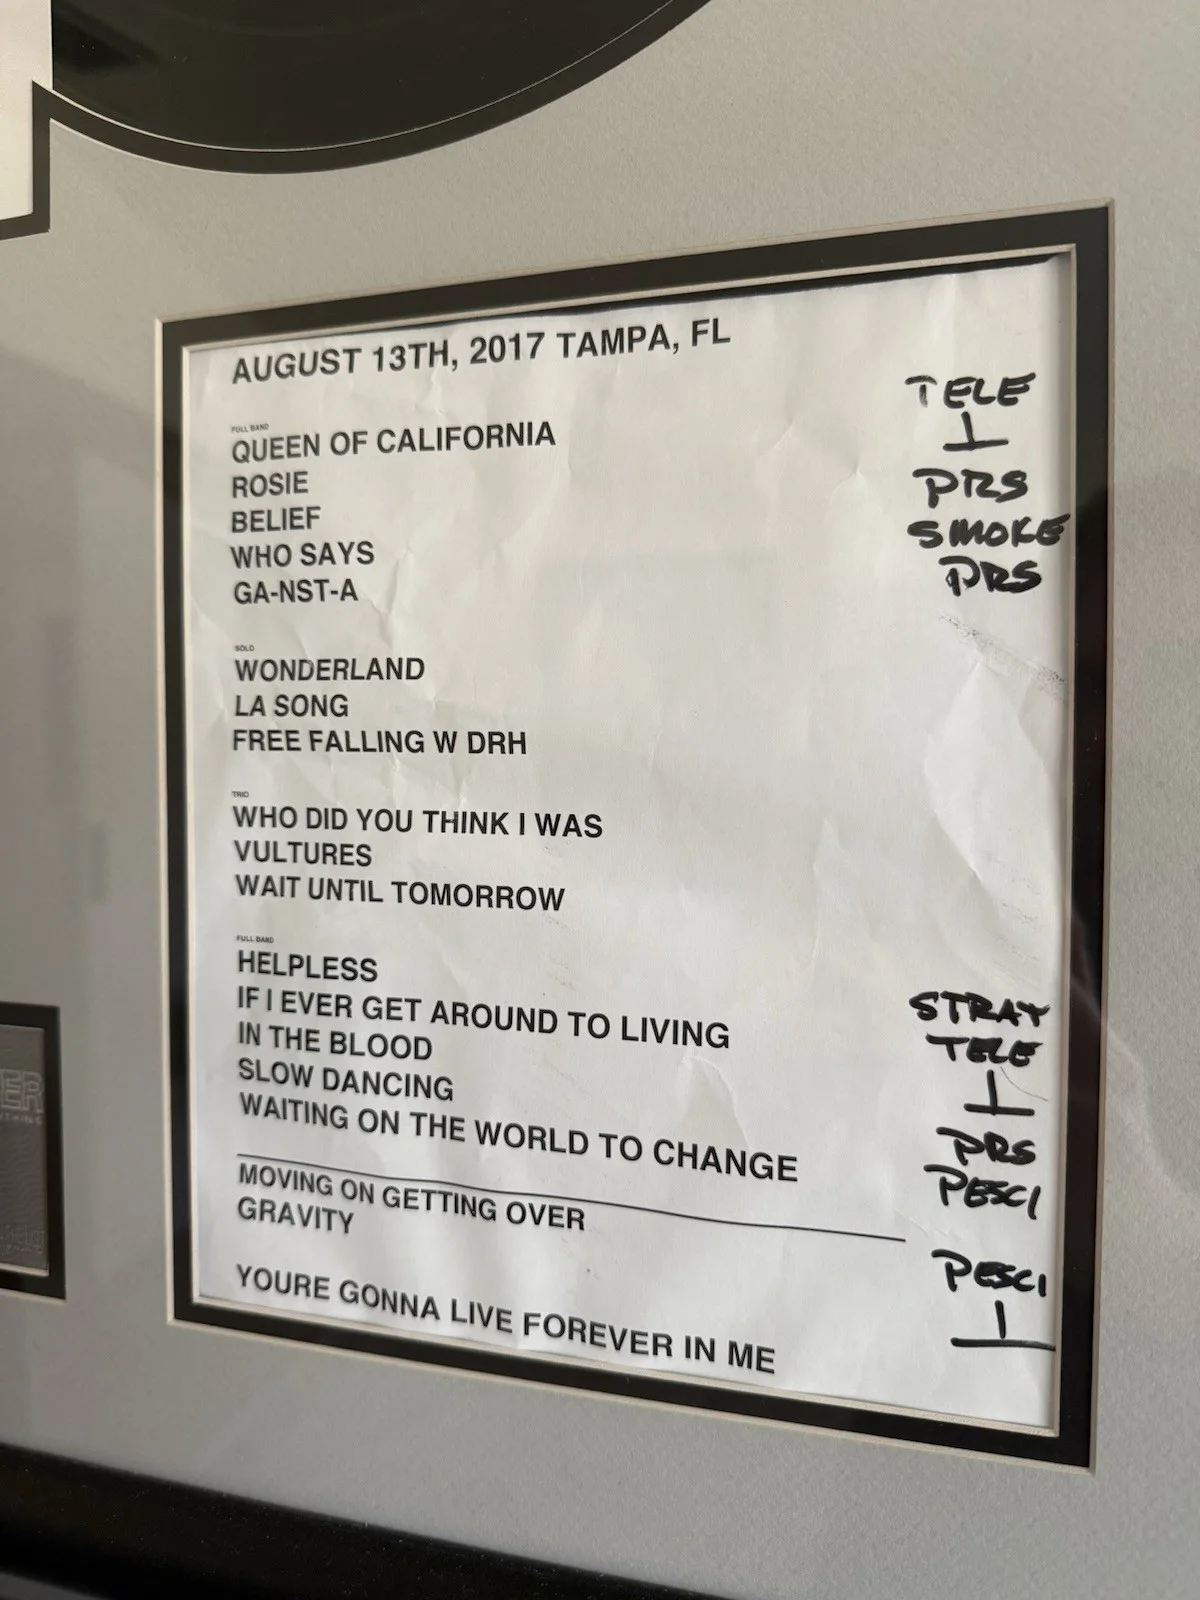 AUGUST 13TH, 2017 TAMPA, FL
TELE
FULL BAND
QUEEN OF CALIFORNIA
ROSIE
PRS
BELIEF
SMOKE
WHO SAYS
PRS
GA-NST-A
SOLO
WONDERLAND
LA SONG
FREE FALLING W DRH
TRIO
WHO DID YOU THINK I WAS
VULTURES
WAIT UNTIL TOMORROW
FULL BAND
HELPLESS
STRAT
IF I EVER GET AROUND TO LIVING
TELE
IN THE BLOOD
SLOW DANCING
PRS
WAITING ON THE WORLD TO CHANGE
PESCI
MOVING ON GETTING OVER
PESCI
GRAVITY
YOURE GONNA LIVE FOREVER IN ME